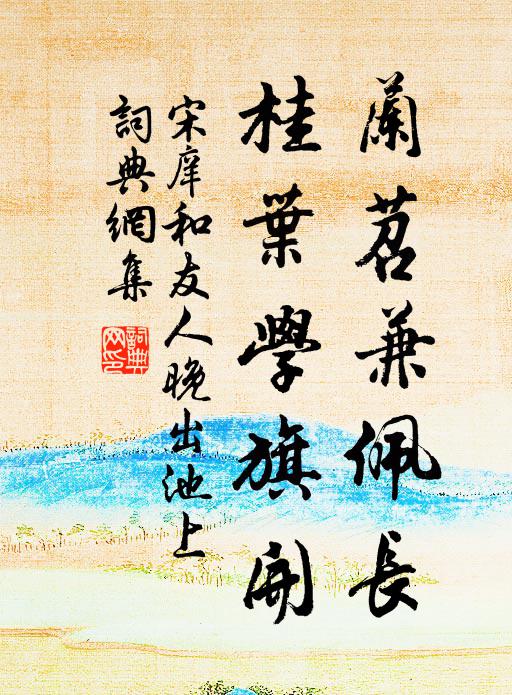 蘭苕兼佩長
桂葉學旗開
宋庠和友人晚出池上
詞典網集
詞典網印